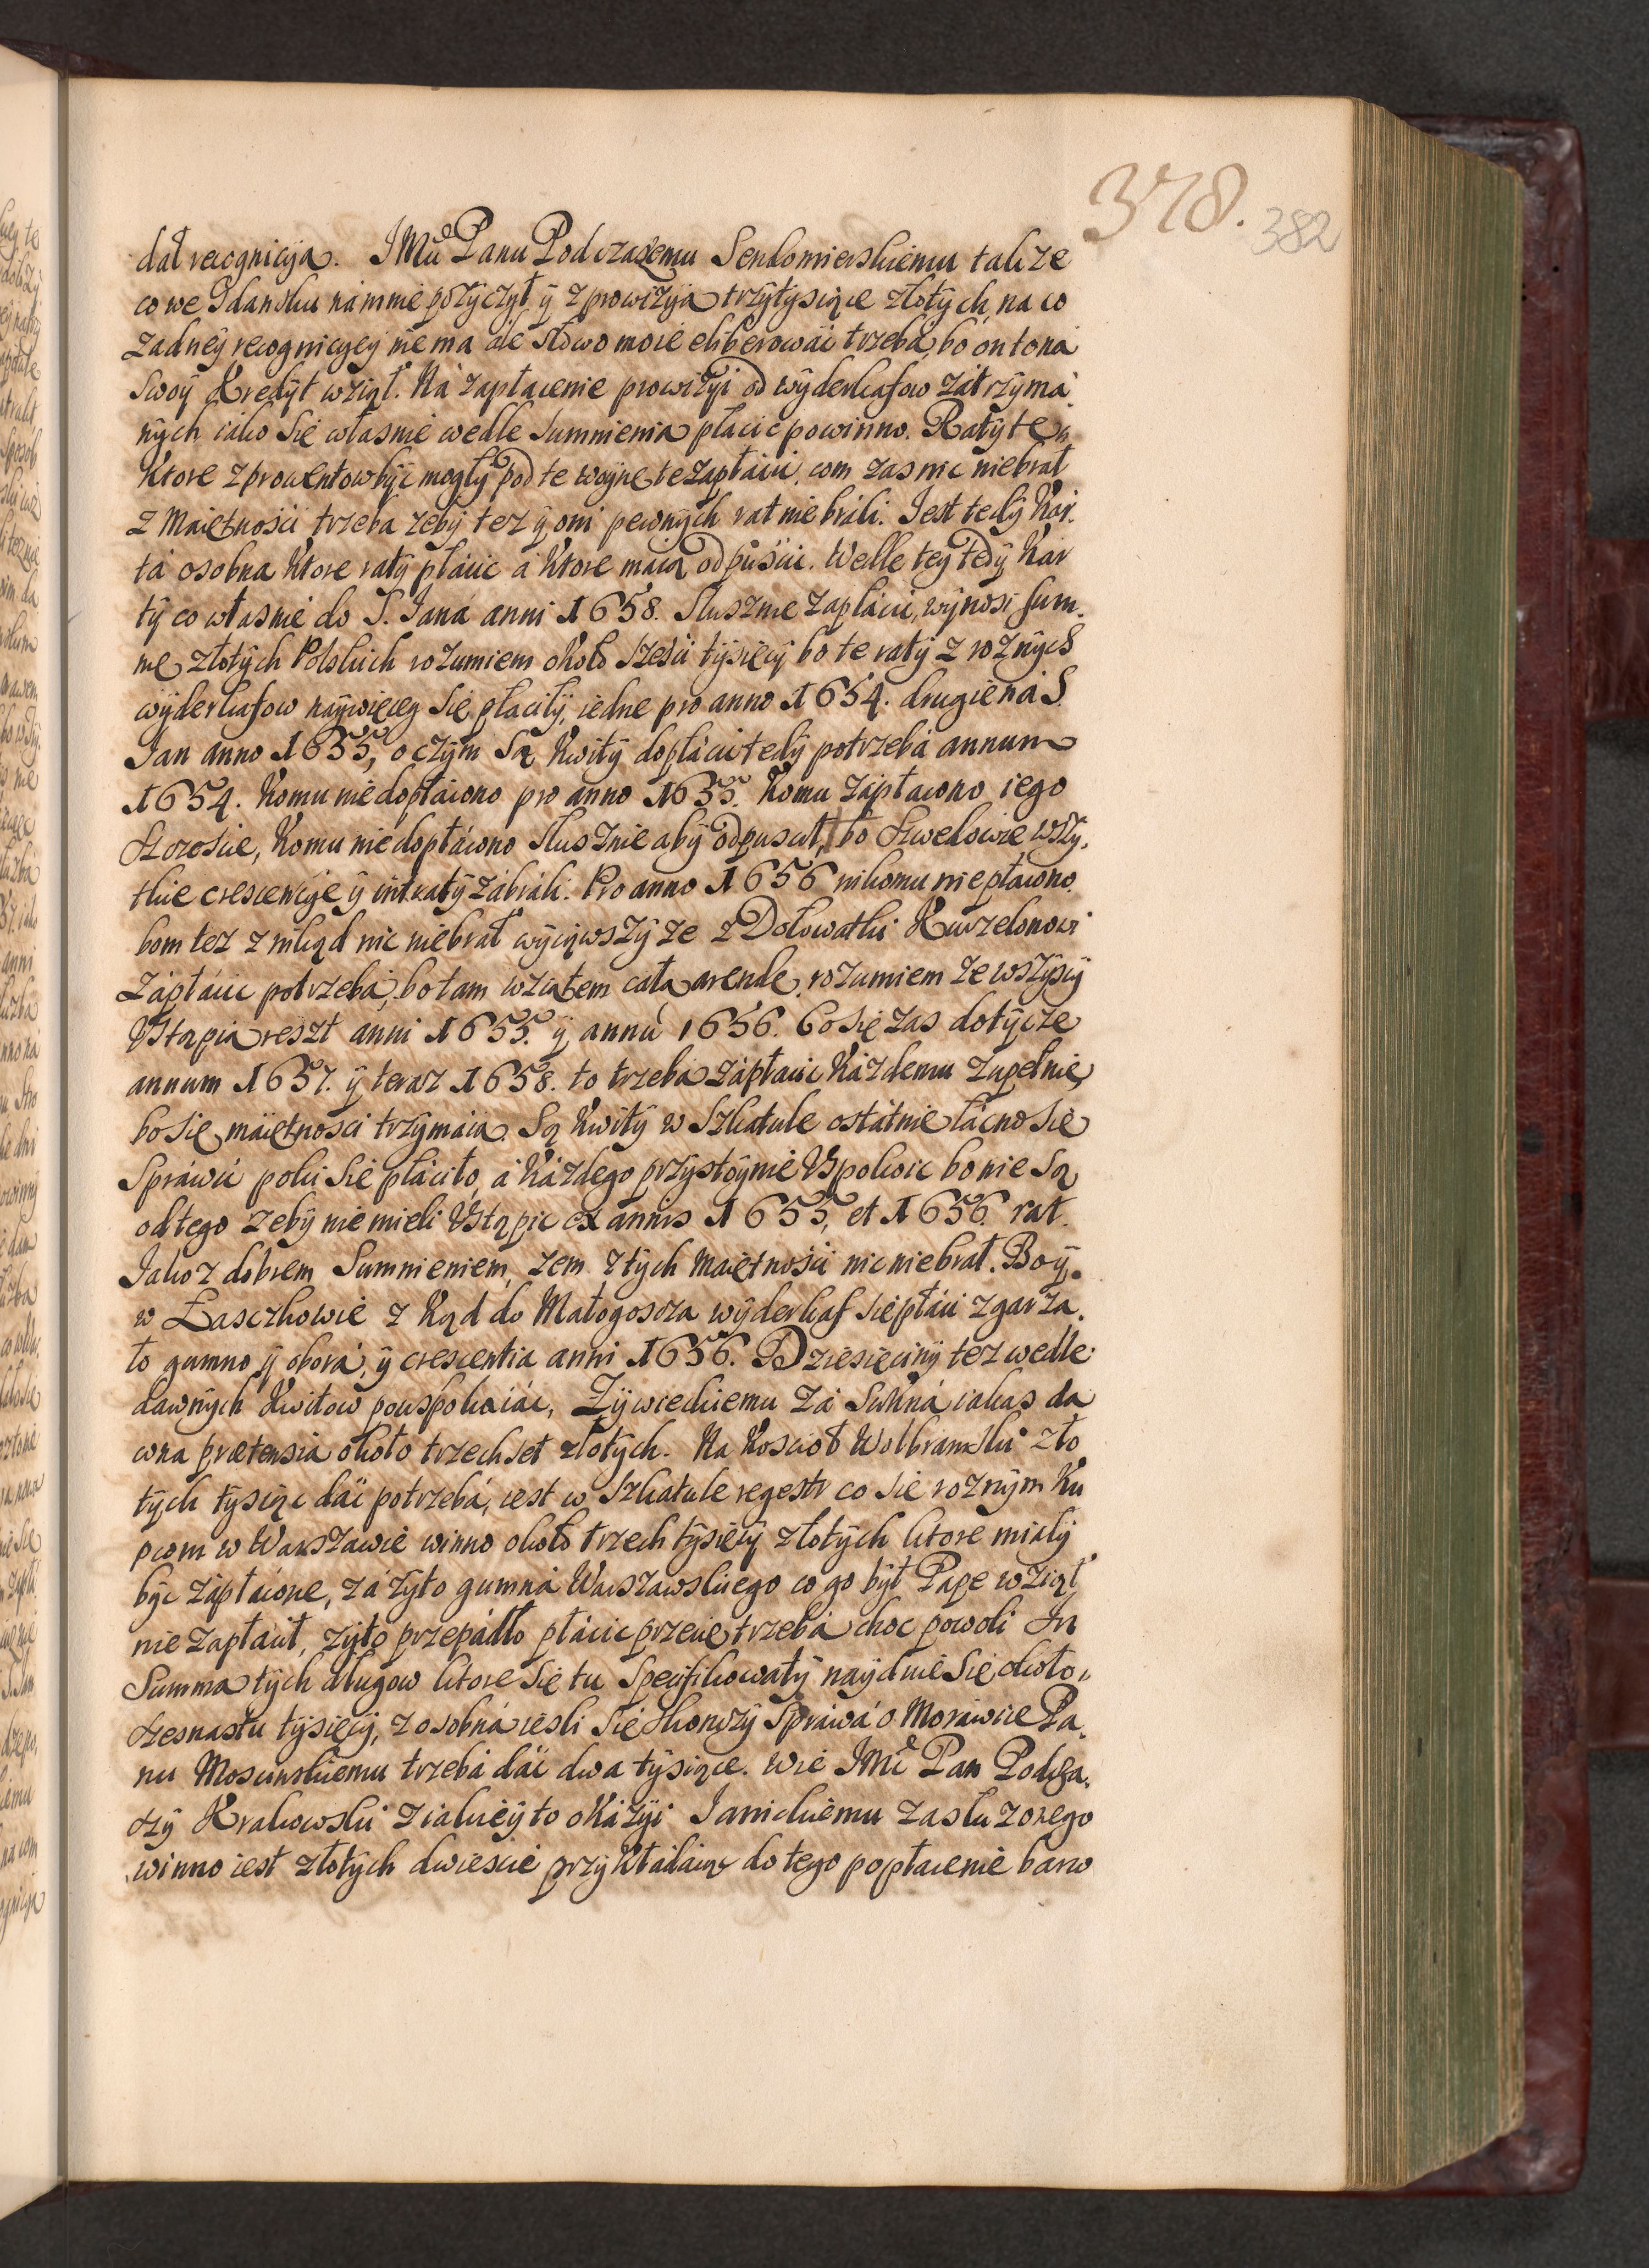 378. 382
dał recognicÿa. JMći Panu Podczaszemu Sendomierskiemu takze
co we Gdansku nà mnie pozÿczÿł ÿ z prowizÿa trzÿ tysiące złotÿch, na co
zadneÿ recognicÿeÿ nie ma ale słowo moie eliberowáć trzebá, bo on to ná
swoÿ Kredÿt wziął. Ná zapłacenie prowizÿi od wÿderkafow zátrzÿmá
nÿch iako się własnie wedle sumnienia płacić powinno. Ratÿ te
Ktore z prowentow bÿć mogłÿ pod te woÿne te zapłácić, com zas nic nie brał
z Maiętności trzeba zebÿ tez ÿ oni pewnÿch rat nie bráli. Jest tedÿ Kár
tá osobna Ktore ratÿ płácic á Ktore máią odpuścic. Wedle teÿ tedÿ Kár
tÿ co własnie do S. Janá anni 1658. słusznie zapłácić, wÿnosi sum
mę złotÿch Polskich rozumiem około sześci tÿsięcÿ bo te ratÿ z roznÿch
wÿderkafow naÿwięceÿ się płaciłÿ, iedne pro anno 1654. drugie ná S.
Jan anno 1655, o czÿm są Kwitÿ dopłácić tedÿ potrzebá annum
1654. Komu nie dopłácono pro anno 1655. Komu zápłacono iego
szczescie, Komu nie dopłácono słusznie abÿ odpuscił, bo Szwedowie wszÿ
tkie crescencÿe ÿ intratÿ zábráli. Pro anno 1656 nikomu nie płácono
bom tez z nikąd nic nie brał wÿiąwszÿ ze z Dołowatki Kurzelonowi
Zápłácic potrzebá, bo tam wziąłem całą arendę, rozumiem ze wszÿscÿ
Vstąpia reszt anni 1655. ÿ annú 1656. Co się zas dotÿcze
annum 1657. ÿ teraz 1658. to trzeba zápłacic Kázdemu zupełnie
bo się máiętnosci trzÿmáią. Są Kwitÿ w Szkatule ostátnie łácno się
spráwić poki się płáciło, á Kázdego przÿstoÿnie Vspokoic bo nie są
od tego zebÿ nie mieli Vstąpic ex annis 1655, et 1656. rat.
Jako z dobrem Sumnieniem, zem z tÿch Maiętnosci nic nie brał. Boÿ
w Łasczkowie z Kąd do Małogoscza wÿderkaf się płáci zgorza
ło gumno ÿ oborá, ÿ crescentia anni 1656. Dziesięcinÿ tez wedle
dawnÿch Kwitow pouspokaiác, Zÿwieckiemu zá Sukná iakas da
wna prætensia około trzech set złotÿch. Na Kosciół Wolbramski zło
tÿch tÿsiąc dáć potrzebá, iest w Szkatule regestr co się roznÿm Ku
pcom w Warszawie winno około trzech tÿsięcÿ złotÿch ktore miałÿ
bÿc zápłácone, zá zÿto gumná Warszawskiego co go bÿł Pape wziął
nie zapłácił, zÿto przepádło płácic przecię trzebá choc powoli In
Summa tÿch długow ktore się tu specifikowałÿ naÿduie się około
szesnastu tÿsięcÿ, z osobná iesli się skonczÿ spráwá o Moráwice Pa
nu Moscinskiemu trzebá dáć dwa tÿsiące. Wie JMć Pan Podcza
szÿ Krakowski z iakieÿ to okázÿi Janickiemu zasłuzonego
winno iest złotÿch dwiescie przÿ Kładaiąc do tego popłacenie barw